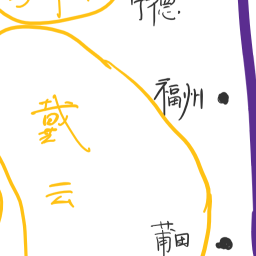 宁德
福州
戴云
莆田